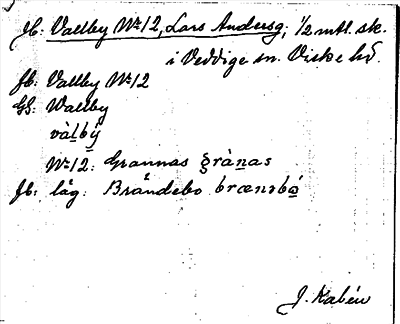 Jb: Vallby No 12, Lars Andersg; 1/2 mtl. sk.
i Veddige sn. Viske hd.
Jb: Vallby No 12
GS: Wallby
vàlbý
No 12: Grannas grànas
Jb: låg: Brändebo brænəbo
J. Kabén